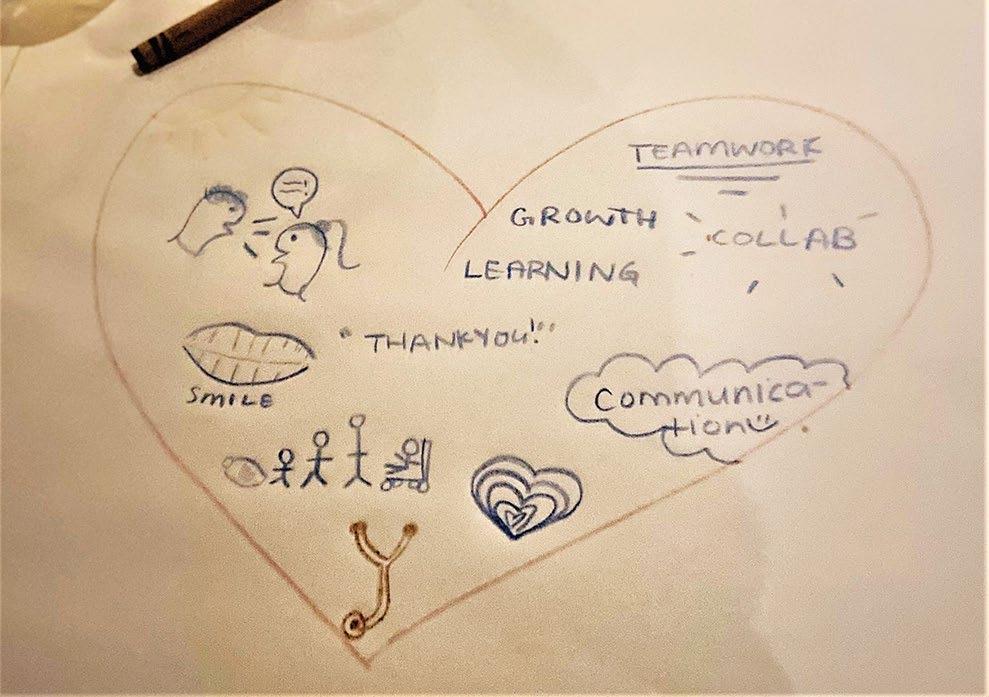 TEAMWORK
GROWTH
COLLAB
LEARNING
"THANKYOU!"
SMILE
Communica-
tion